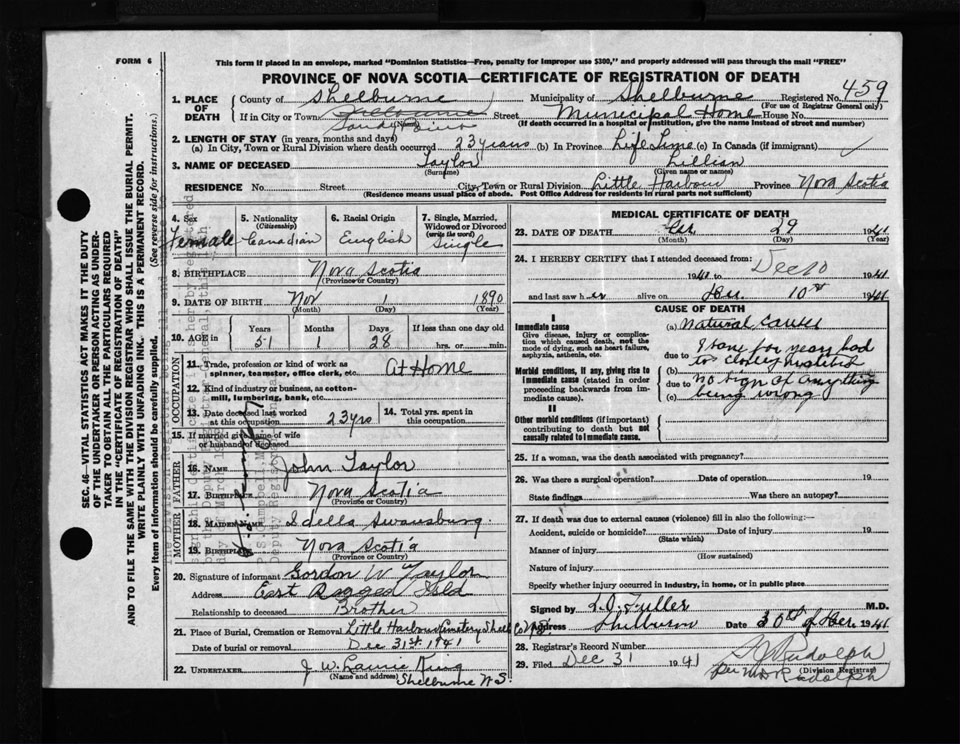 FORM 6
This form if placed in an envelope, marked "Dominion Statistics—Free, penalty for improper use $300," and properly addressed will pass through the mail "FREE"
PROVINCE OF NOVA SCOTIA—CERTIFICATE OF REGISTRATION OF DEATH
SEC. 46—VITAL STATISTICS ACT MAKES IT THE DUTY
OF THE UNDERTAKER OR PERSON ACTING AS UNDER-
TAKER TO OBTAIN ALL THE PARTICULARS REQUIRED
IN THE "CERTIFICATE OF REGISTRATION OF DEATH"
AND TO FILE THE SAME WITH THE DIVISION REGISTRAR WHO SHALL ISSUE THE BURIAL PERMIT.
WRITE PLAINLY WITH UNFADING INK. THIS IS A PERMANENT RECORD.
Every item of information should be carefully supplied. (See reverse side for instructions.)
1. PLACE OF DEATH County of Shelburne Municipality of Shelburne Registered No. 459
(For use of Registrar General only)
If in City or Town Shelburne Sandy Point Street Municipal Home House No.
(If death occurred in a hospital or institution, give the name instead of street and number)
2. LENGTH OF STAY (in years, months and days)
(a) In City, Town or Rural Division where death occurred 23 years (b) In Province Life Time (c) In Canada (if immigrant)
3. NAME OF DECEASED Taylor Lillian
(Surname) (Given name or names)
RESIDENCE No. Street City, Town or Rural Division Little Harbour Province Nova Scotia
(Residence means usual place of abode. Post Office Address for residents in rural parts not sufficient)
4. Sex Female
5. Nationality (Citizenship) Canadian
6. Racial Origin English
7. Single, Married, Widowed or Divorced (write the word) Single
8. BIRTHPLACE Nova Scotia
(Province or Country)
9. DATE OF BIRTH Nov 1 1890
(Month) (Day) (Year)
10. AGE in Years 51 Months 1 Days 28 If less than one day old
hrs. or min.
OCCUPATION
11. Trade, profession or kind of work as
spinner, teamster, office clerk, etc. At Home
12. Kind of industry or business, as cotton-
mill, lumbering, bank, etc.
13. Date deceased last worked
at this occupation 23 yrs
14. Total yrs. spent in
this occupation
15. If married give name of wife
or husband of deceased
FATHER
16. NAME John Taylor
17. BIRTHPLACE Nova Scotia
(Province or Country)
MOTHER
18. MAIDEN NAME Idella Swansburg
19. BIRTHPLACE Nova Scotia
(Province or Country)
20. Signature of informant Gordon W Taylor
Address East Ragged Isld
Relationship to deceased Brother
21. Place of Burial, Cremation or Removal Little Harbour Cemetery Shelb Co N.S.
Date of burial or removal Dec 31st 1941
22. UNDERTAKER J. W. Laurie King
(Name and address) Shelburne N.S.
MEDICAL CERTIFICATE OF DEATH
23. DATE OF DEATH Dec 29 1941
(Month) (Day) (Year)
24. I HEREBY CERTIFY that I attended deceased from: Dec 10
1941 to 1941
and last saw her alive on Dec 10th 1941
CAUSE OF DEATH
I
Immediate cause
Give disease, injury or complica-
tion which caused death, not the
mode of dying, such as heart failure,
asphyxia, asthenia, etc.
(a) Natural causes
due to
(b)
due to
(c)
no sign of anything
being wrong
Morbid conditions, if any, giving rise to
immediate cause (stated in order
proceeding backwards from im-
mediate cause).
II
Other morbid conditions (if important)
contributing to death but not
causally related to immediate cause.
25. If a woman, was the death associated with pregnancy?
26. Was there a surgical operation? Date of operation 19
State findings Was there an autopsy?
27. If death was due to external causes (violence) fill in also the following:—
Accident, suicide or homicide? Date of injury 19
(State which)
Manner of injury
(How sustained)
Nature of injury
Specify whether injury occurred in industry, in home, or in public place
Signed by L.O. Fuller M.D.
Address Shelburne Date 30th of Dec 1941
28. Registrar's Record Number
29. Filed Dec 31 1941
Rudolph
Per M Rudolph
(Division Registrar)